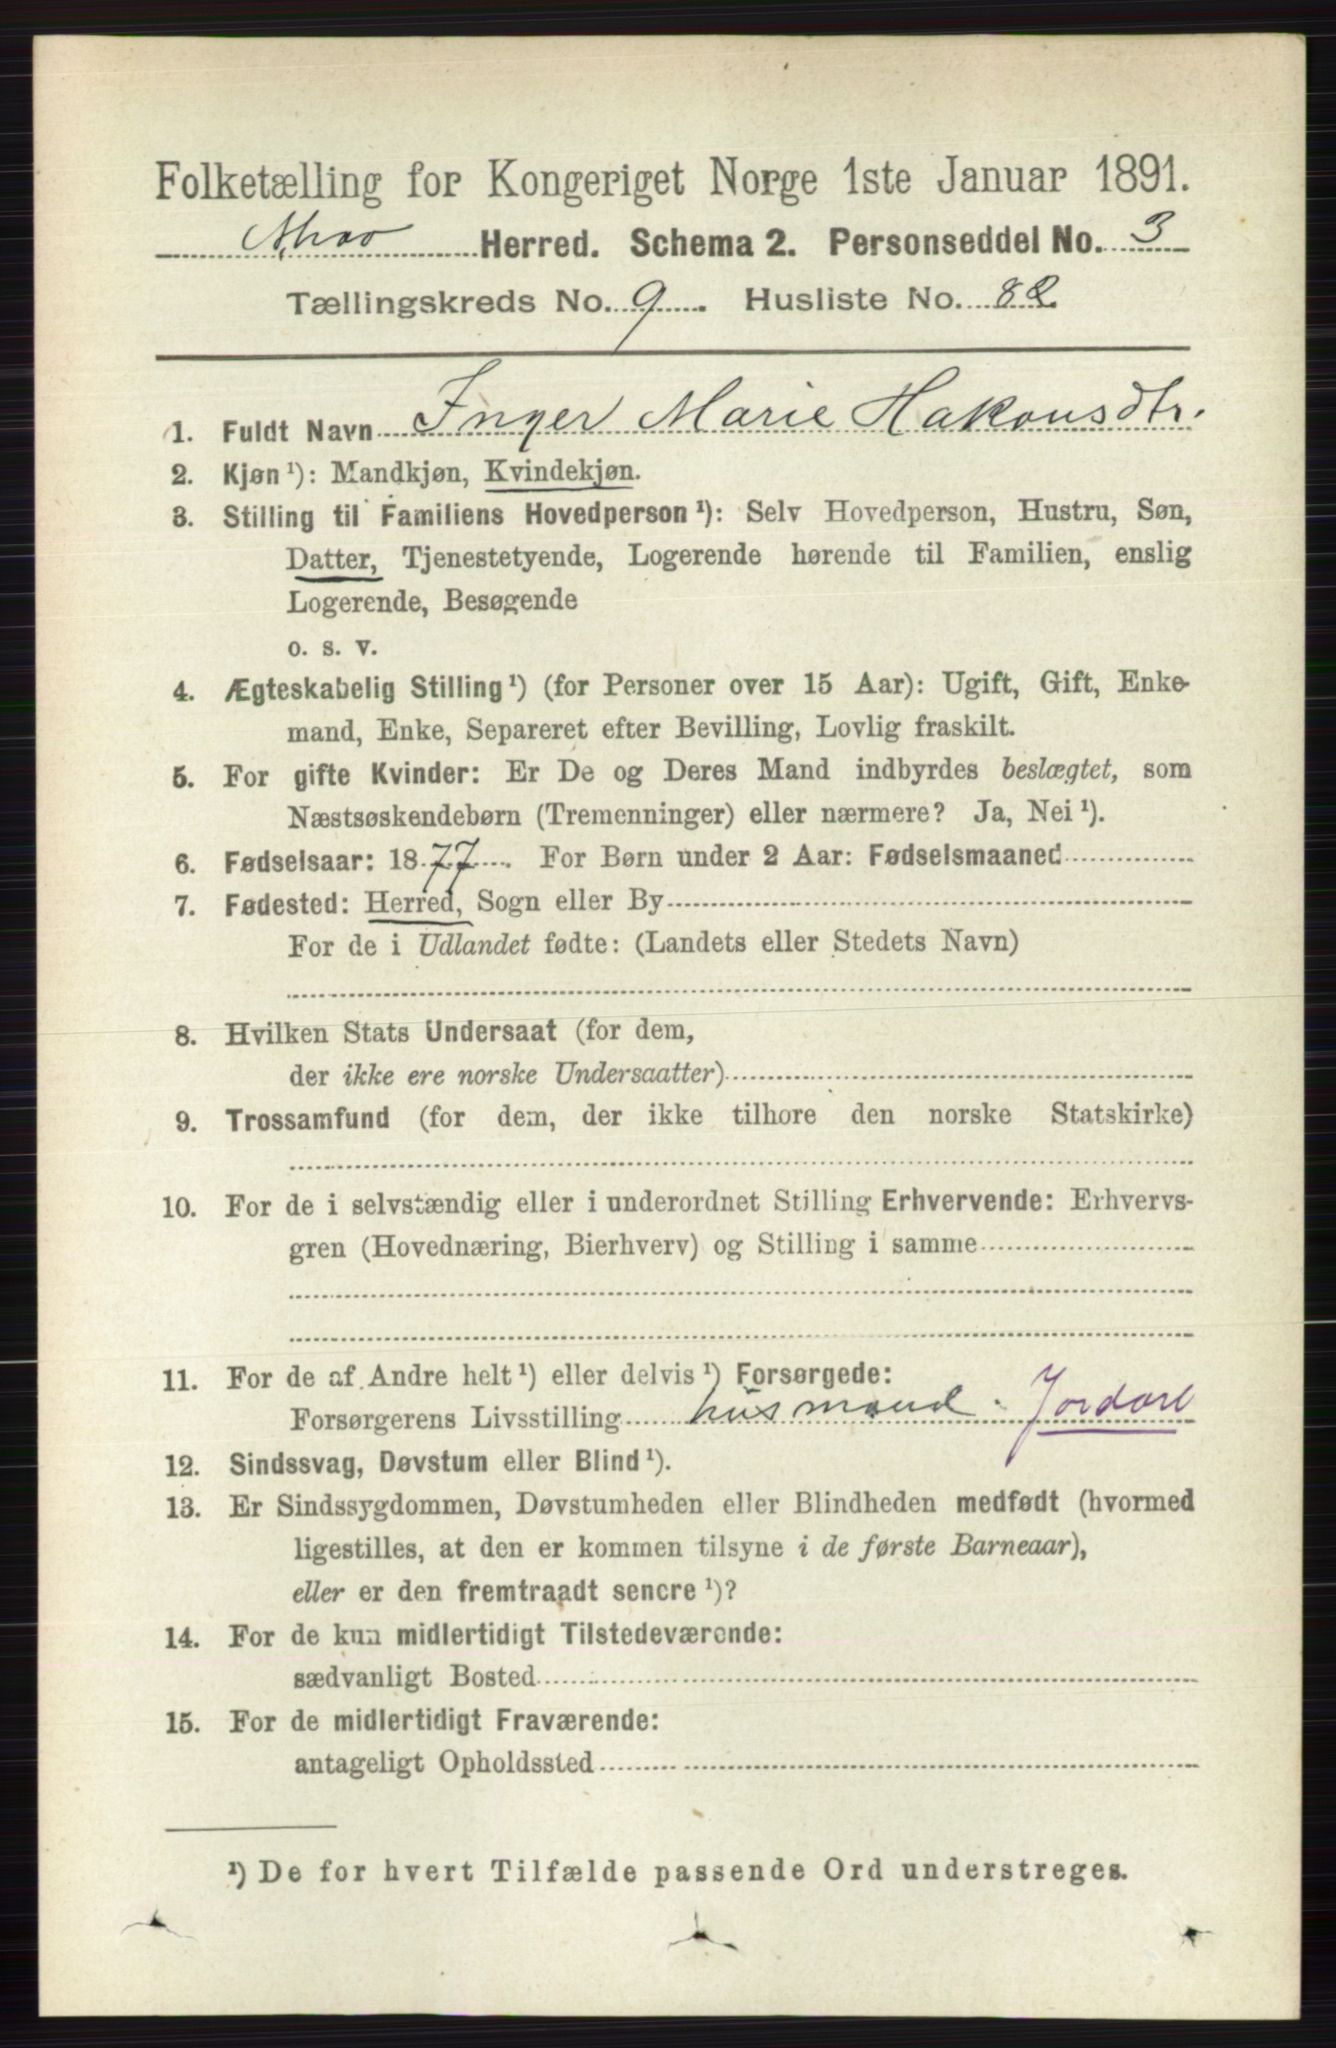 Folketælling for Kongeriget Norge 1ste Januar 1891.
Herred. Schema 2. Personseddel No. 3
Tællingskreds No. 9. Husliste No. 82
1. Fuldt Navn Inger Marie Hakonsdtr.
2. Kjøn ¹): Mandkjøn, Kvindekjøn.
3. Stilling til Familiens Hovedperson ¹): Selv Hovedperson, Hustru, Søn,
Datter, Tjenestetyende, Logerende hørende til Familien, enslig
Logerende, Besøgende
o. s. v.
4. Ægteskabelig Stilling ¹) (for Personer over 15 Aar): Ugift, Gift, Enke-
mand, Enke, Separeret efter Bevilling, Lovlig fraskilt.
5. For gifte Kvinder: Er De og Deres Mand indbyrdes beslægtet, som
Næstsøskendebørn (Tremenninger) eller nærmere? Ja, Nei ¹).
6. Fødselsaar: 1877. For Børn under 2 Aar: Fødselsmaaned
7. Fødested: Herred, Sogn eller By
For de i Udlandet fødte: (Landets eller Stedets Navn)
8. Hvilken Stats Undersaat (for dem,
der ikke ere norske Undersaatter)
9. Trossamfund (for dem, der ikke tilhore den norske Statskirke)
10. For de i selvstændig eller i underordnet Stilling Erhvervende: Erhvervs-
gren (Hovednæring, Bierhverv) og Stilling i samme
11. For de af Andre helt ¹) eller delvis ¹) Forsørgede:
Forsørgerens Livsstilling husmand. Jordarb
12. Sindssvag, Døvstum eller Blind ¹).
13. Er Sindssygdommen, Døvstumheden eller Blindheden medfødt (hvormed
ligestilles, at den er kommen tilsyne i de første Barneaar),
eller er den fremtraadt senere ¹)?
14. For de kun midlertidigt Tilstedeværende:
sædvanligt Bosted
15. For de midlertidigt Fraværende:
antageligt Opholdssted
¹) De for hvert Tilfælde passende Ord understreges.